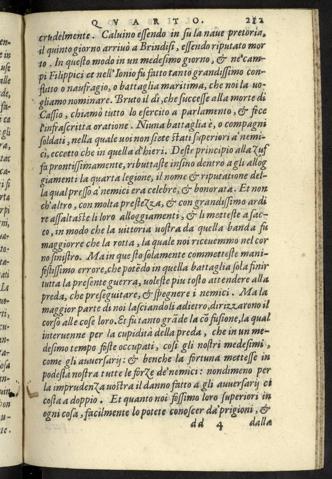 QVARTO. 212
crudelmente. Caluino essendo in su la naue pretoria,
il quinto giorno arriuò a Brindisi, essendo riputato mor
to. In questo modo in un medesimo giorno, & ne' cam-
pi Filippici et nell'Ionio fu fatto tanto grandissimo con-
flutto o naufragio, o battaglia maritima, che noi la uo-
gliamo nominare. Bruto il dì, che successe alla morte di
Cassio, chiamò tutto lo esercito a parlamento, & fece
l'infrascritta oratione. Niuna battaglia è, o compagni
soldati, nella quale uoi non siete stati superiori a' nemi-
ci, eccetto che in quella d'hieri. Deste principio alla zuf
fa prontissimamente, ributtaste insino dentro a gli allog
giamenti la quarta legione, il nome & riputatione del-
la qual presso a' nemici era celebre, & honorata. Et non
ch'altro, con molta prestezza, & con grandissimo ardi
re assaltaste li loro alloggiamenti, & li metteste a sac-
co, in modo che la uittoria uostra da quella banda fu
maggiore che la rotta, la quale noi riceuemmo nel cor
no sinistro. Ma in questo solamente commetteste mani-
festissimo errore, che potēdo in quella battaglia sola finir
tutta la presente guerra, uoleste piu tosto attendere alla
preda, che preseguitare, & spegnere i nemici. Ma la
maggior parte di noi lasciandoli adietro, dirizzarono il
corso alle cose loro. Et fu tanto grāde la cōfusione, la qual
interuenne per la cupidità della preda, che in un me-
desimo tempo foste occupati, così gli nostri medesimi,
come gli auuersarij: & benche la fortuna mettesse in
podestà nostra tutte le forze de' nemici: nondimeno per
la imprudenza uostra il danno fatto a gli auuersarij ci
costa a doppio. Et quanto noi fossimo loro superiori in
ogni cosa, facilmente lo potete conoscer da' prigioni, &
dd 4 dalla